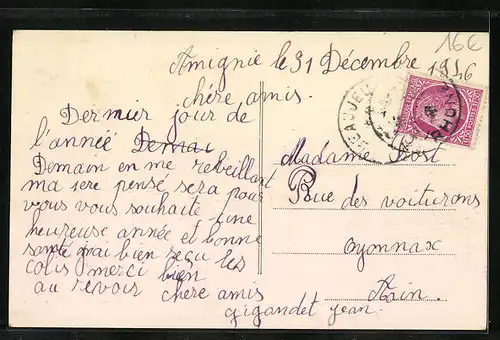 16€
Amignié le 31 Décembre 1946
chère amis.
Dernier jour de
l'année Demai
Demain en me reveillant
ma 1ere pensé sera pour
vous vous souhaite une
heureuse année et bonne
santé j'ai bien reçu les
colis merci bien
au revoir chère amis
gigandet jean.
BEAUJEU
RHONE
Madame Post
Rue des voiturons
Oyonnax
Ain.